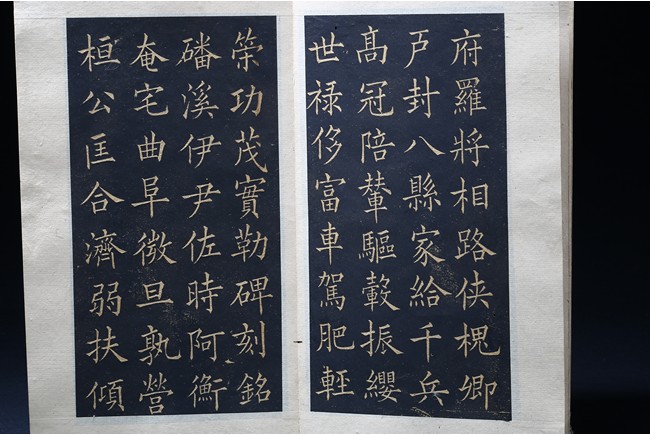 府羅將相路俠槐卿
戸封八縣家給千兵
髙冠陪輦驅轂振纓
世禄侈富車駕肥輕
策功茂實勒碑刻銘
磻溪伊尹佐時阿衡
奄宅曲阜微旦孰營
桓公匡合濟弱扶傾